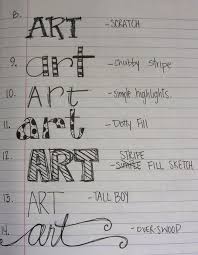 8. ART - SCRATCH
9. art - chubby stripe
10. Art - simple highlights.
11. art - Dotty Fill
12. ART - STRIPE FILL SKETCH
13. ART - TALL BOY
14. art - OVER-SWOOP